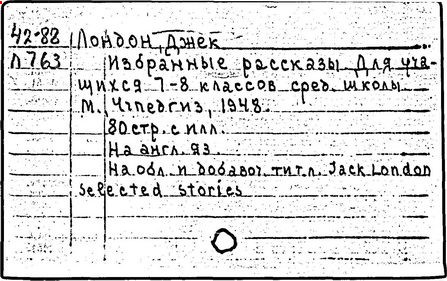 42-88 Лондон, Джек
Л763 Избранные рассказы. Для уча-
щихся 7-8 классов сред. школы.
М., Учпедгиз, 1948.
80 стр. с илл.
На англ. яз.
На обл. и добавоч. тит. л. Jack London
Selected stories